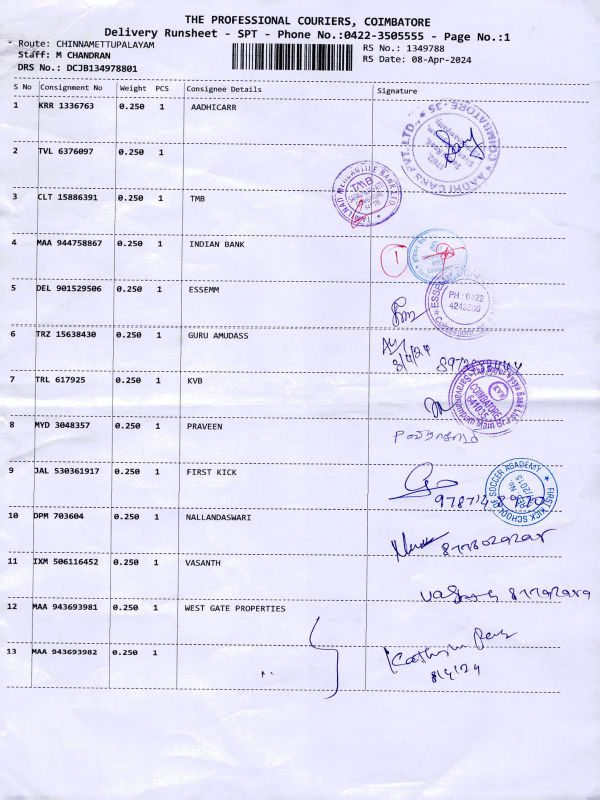 THE PROFESSIONAL COURIERS, COIMBATORE
Delivery Runsheet - SPT - Phone No.:0422-3505555 - Page No.:1
Route: CHINNAMETTUPALAYAM
RS No.: 1349788
Staff: M CHANDRAN
RS Date: 08-Apr-2024
DRS No.: DCJB134978801
S No Consignment No Weight PCS Consignee Details Signature
1 KRR 1336763 0.250 1 AADHICARR
2 TVL 6376097 0.250 1
3 CLT 15886391 0.250 1 TMB
4 MAA 944758867 0.250 1 INDIAN BANK
5 DEL 901529506 0.250 1 ESSEMM
PH : 0422
4243800
6 TRZ 15638430 0.250 1 GURU AMUDASS
8/4/24
7 TRL 617925 0.250 1 KVB
KVB
COIMBATORE
641035
8 MYD 3048357 0.250 1 PRAVEEN
9 JAL 530361917 0.250 1 FIRST KICK
FIRST KICK SCHOOL OF SOCCER ACADEMY
10 DPM 703604 0.250 1 NALLANDASWARI
11 IXM 506116452 0.250 1 VASANTH
12 MAA 943693981 0.250 1 WEST GATE PROPERTIES
13 MAA 943693982 0.250 1
8/4/24